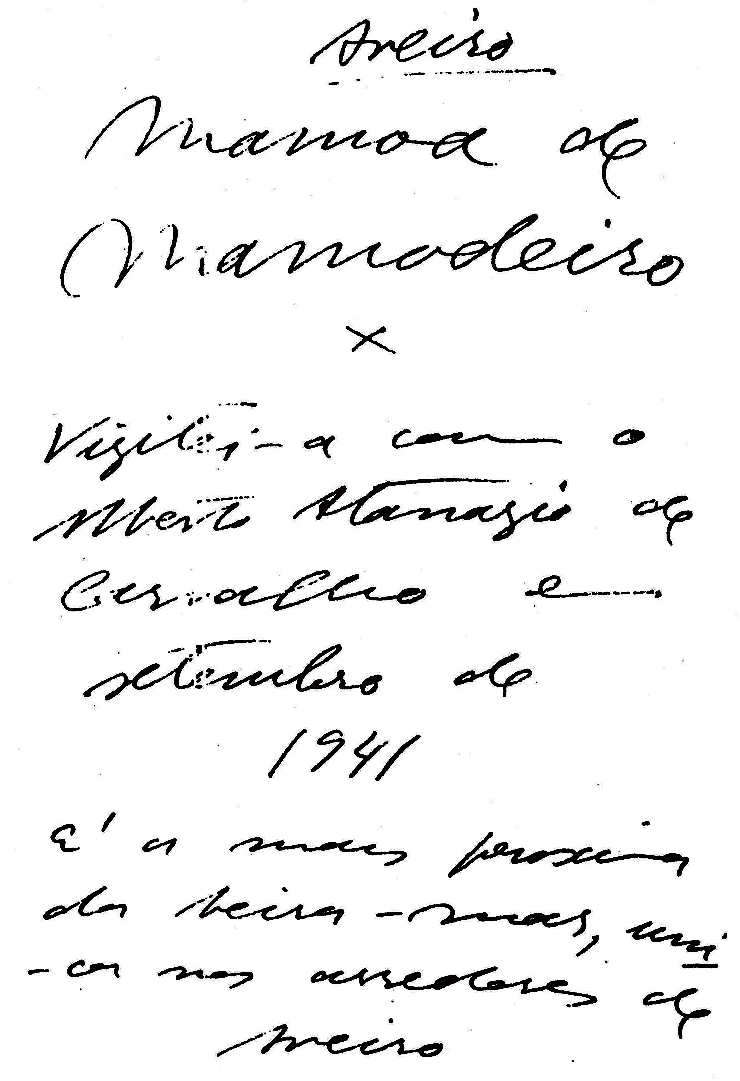 Aveiro
Mamoa de
Mamodeiro
×
Vizitei-a com o
Alberto Atanazio de
Carvalho e
setembro de
1941
E' a mais proxima
da beira-mar, uni
-ca nos arredores de
Aveiro